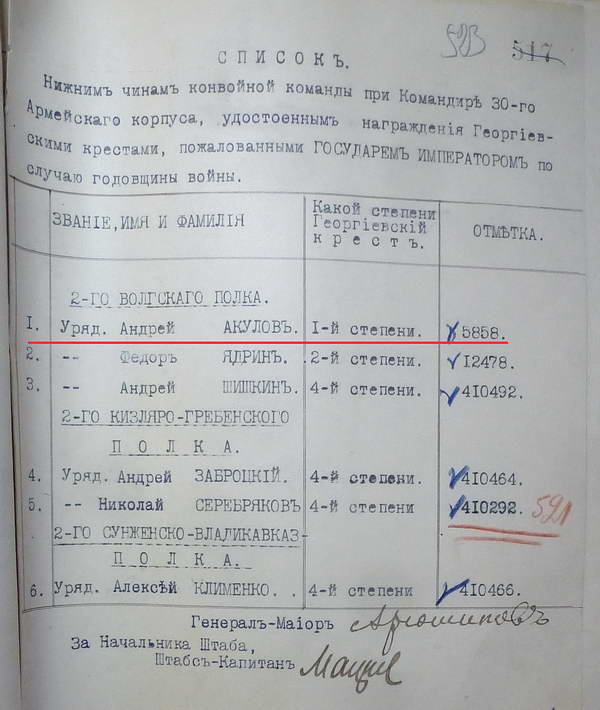 523 517
СПИСОКЪ.
Нижнимъ чинамъ конвойной команды при Командирѣ 30-го
Армейскаго корпуса, удостоеннымъ награжденія Георгіев-
скими крестами, пожалованными ГОСУДАРЕМЪ ИМПЕРАТОРОМЪ по
случаю годовщины войны.
ЗВАНІЕ, ИМЯ И ФАМИЛІЯ Какой степени Георгіевскій крестъ. ОТМѢТКА.
2-ГО ВОЛГСКАГО ПОЛКА.
I. Уряд. Андрей АКУЛОВЪ. I-й степени. 5858.
2. -- Федоръ ЯДРИНЪ. 2-й степени. I2478.
3. -- Андрей ШИШКИНЪ. 4-й степени. 4I0492.
2-ГО КИЗЛЯРО-ГРЕБЕНСКОГО
ПОЛКА.
4. Уряд. Андрей ЗАБРОЦКІЙ. 4-й степени. 4I0464.
5. -- Николай СЕРЕБРЯКОВЪ 4-й степени 4I0292. 591
2-ГО СУНЖЕНСКО-ВЛАДИКАВКАЗ-
ПОЛКА.
6. Уряд. Алексѣй КЛИМЕНКО. . 4-й степени 4I0466.
Генералъ-Маіоръ
За Начальника Штаба,
Штабсъ-Капитанъ